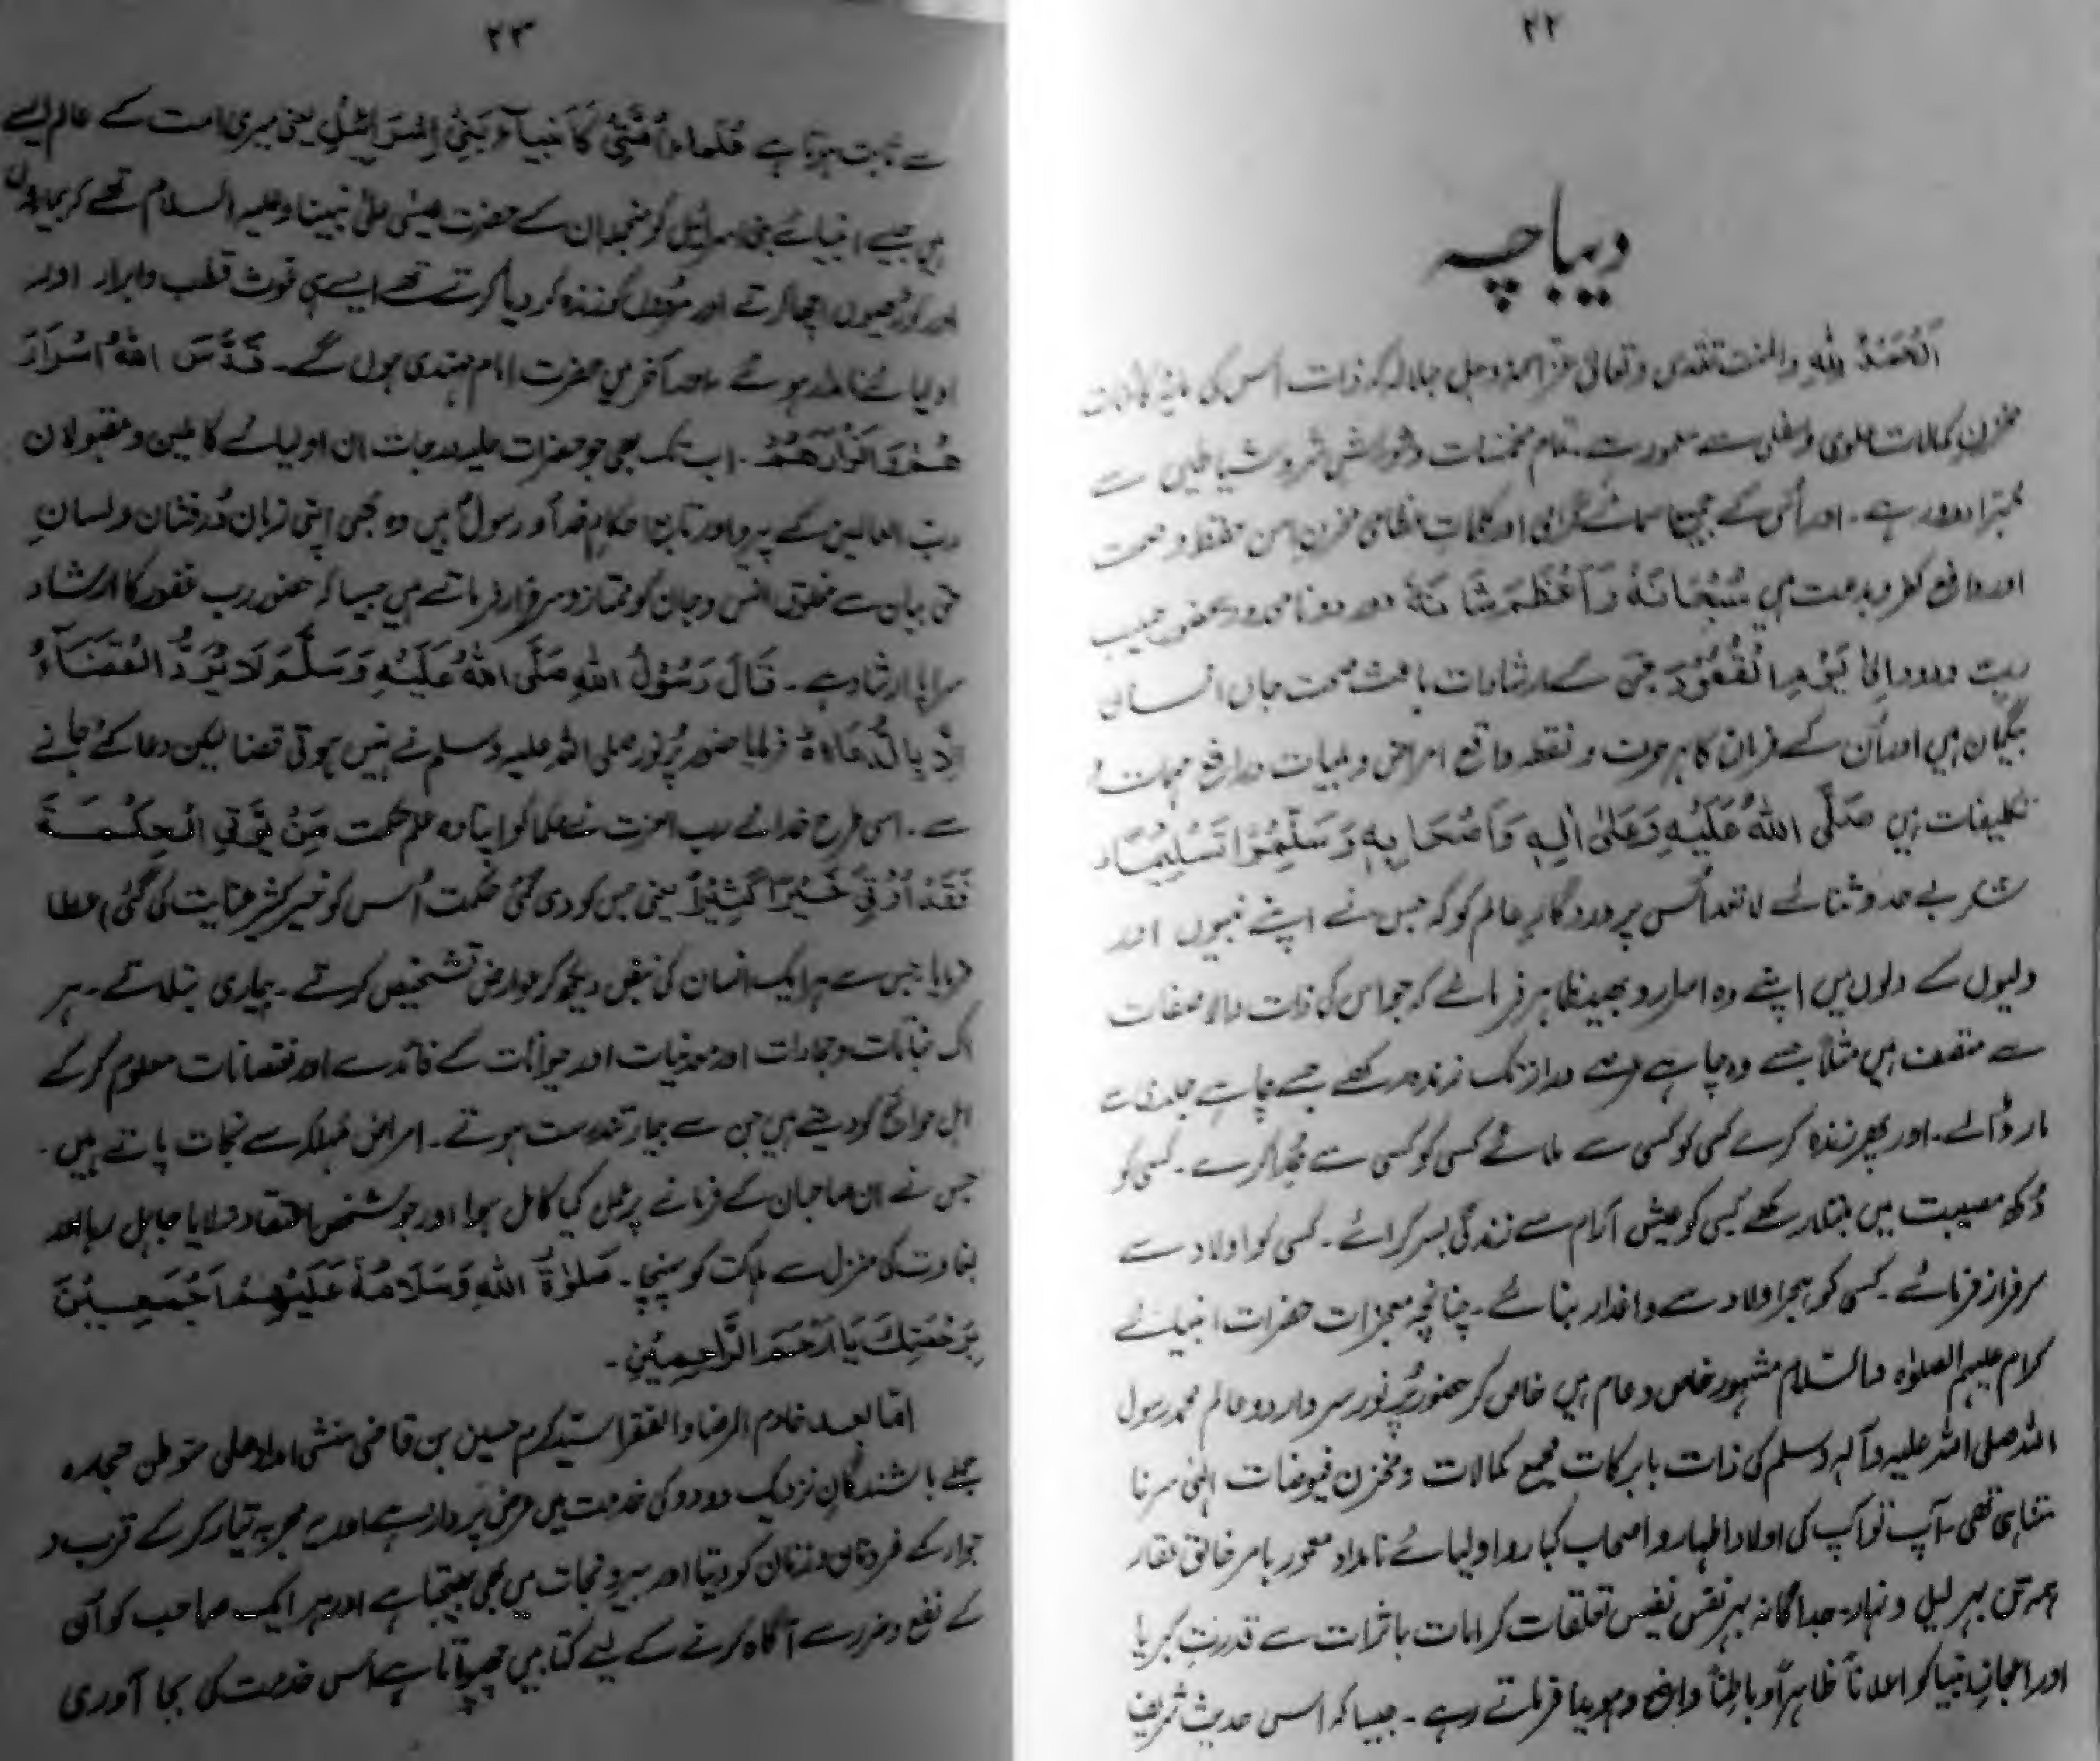 ۲۲
دیباچہ
اَلْحَمْدُ لِلّٰہِ والمنت تقدس و تعالیٰ عز اسمہ وجل جلالہ کہ ذات اُس کی
مخزنِ کمالات علوی وسفلی سے معمور ہے۔ تمام مخمصات و شورش شر و شیاطین سے
مبرّا و دور ہے۔ اور اُس کے اسمائے گرامی اور کلمات نظامی مخزنِ امن حفظ و صحت
اور دافع کفر و بدعت ہیں سُبْحَانَہٗ وَاَعْظَمَ شَانَہٗ اور درود نامحدود بحضور حبیب
ربِّ ودود اِلیٰ یَوْمِ الْقُعُوْد جن کے ارشادات باعث صحت جان انسان
ہیں اور اُن کے فرمان کا ہر حرف و نقطہ دافع امراض و بلیات و رافع مہمات و
تکلیفات ہیں صَلَّی اللّٰہُ عَلَیْہِ وَعَلیٰ اٰلِہٖ وَاَصْحَابِہٖ وَسَلِّمُوْا تَسْلِیْمًا۔
شکر بے حد و ثنائے لاتعد اُس پروردگارِ عالم کو کہ جس نے اپنے نبیوں اور
ولیوں کے دلوں میں اپنے وہ اسرار و بھید ظاہر فرمائے کہ جو اس کی ذات والا صفات
سے متصف ہیں مثلاً جسے وہ چاہے عرصے دراز تک زندہ رکھے جسے چاہے جلدی سے
مار ڈالے۔ اور پھر زندہ کرے کسی کو کسی سے ملائے کسی کو کسی سے جُدا کرے۔ کسی کو
دُکھ مصیبت میں مبتلا رکھے کسی کو عیش آرام سے زندگی بسر کرائے۔ کسی کو اولاد سے
سرفراز فرمائے۔ کسی کو ہجرِ اولاد سے داغدار بنائے۔ چنانچہ معجزات حضرات انبیائے
کرام علیہم الصلوٰۃ والسلام مشہور خاص و عام ہیں خاص کر حضور پُرنور سردار دو عالم محمد رسول
اللہ صلی اللہ علیہ وآلہ وسلم کی ذات بابرکات مجمع کمالات و مخزن فیوضات الٰہی سرتا
تھی۔ آپ تو آپ کی اولاد اطہار و اصحاب کبار و اولیائے نامدار معمور بامر خالق غفار
ہمہ تن بہر لیل و نہار۔ جداگانہ بہر نفس نفیس تعلقات کرامات باثرات سے قدرتِ کبریا
اور اعجازِ انبیا کو اعلاناً ظاہراً و باطناً واضح و ہویدا فرماتے رہے۔ جیسا کہ اس حدیث شریف
۲۳
سے ثابت ہوتا ہے عُلَمَاءُ اُمَّتِیْ کَاَنْبِیَآءِ بَنِیْ اِسْرَائِیْلَ یعنی میری امت کے عالم ایسے
ہیں جیسے انبیائے بنی اسرائیل کہ منجملہ ان کے حضرت عیسیٰ علیٰ نبینا وعلیہ السلام تھے کہ بیماروں
اور کوڑھیوں اچھا کرتے اور مُردوں کو زندہ کر دیا کرتے تھے ایسے ہی غوث قطب و ابرار اور
اولیائے نامدار ہوئے۔ آخر میں حضرت امام مہدی ہوں گے۔ قَدَّسَ اللّٰہُ اَسْرَارَ
ھُمْ وَاَنْوَارَھُمْ۔ اب تک بھی جو حضرات عالیہ درجات ان اولیائے کاملین و مقبولان
رب العالمین کے پیرو اور تابع احکام خدا و رسول ہیں وہ بھی اپنی زبان دُرفشان و لسانِ
حق بیان سے مخلوق انس و جان کو ممتاز و سرفراز فرماتے ہیں جیسا کہ حضور رب غفور کا ارشاد
سراپا ارشاد ہے۔ قَالَ رَسُوْلُ اللّٰہِ صَلَّی اللّٰہُ عَلَیْہِ وَسَلَّمَ لَا یُرَدُّ الْقَضَآءُ
اِلَّا بِالدُّعَاءِ فرمایا حضور پُرنور صلی اللہ علیہ وسلم نے نہیں ہوتی قضا لیکن دعا کئے جانے
سے۔ اسی طرح خدائے رب العزت نے حکما کو اپنا وہ علم حکمت مَنْ یُّؤْتِی الْحِکْمَۃَ
فَقَدْ اُوْتِیَ خَیْرًا کَثِیْرًا یعنی جس کو دی گئی حکمت اُس کو خیر کثیر عنایت کی گئی) عطا
فرمایا جس سے ہر ایک انسان کی نبض دیکھ کر عوارض تشخیص کرتے۔ بیماری بتلاتے۔ ہر
اک نباتات و جمادات اور معدنیات اور حیوانات کے فائدے اور نقصانات معلوم کر کے
اہل حوائج کو دیتے ہیں جن سے بیمار تندرست ہوتے۔ امراض مُہلک سے نجات پاتے ہیں۔
جس نے ان صاحبان کے فرمانے پر عمل کیا کامل ہوا اور جو شخص اعتقاد نہ لایا جاہل رہا اور
بغاوت کی منزل سے ہلاکت کو پہنچا۔ صَلوٰۃُ اللّٰہِ وَسَلَامُہٗ عَلَیْھِمْ اَجْمَعِیْنَ
بِرَحْمَتِکَ یَا اَرْحَمَ الرَّاحِمِیْنَ۔
امّا بعد خادم المرضا والفقرا سید کرم حسین بن قاضی منشی امداد علی متوطن تجارہ
جملے باشندگان نزدیک و دور کی خدمت میں عرض پرداز ہے اور یہ مجربہ تیار کر کے قرب و
جوار کے مردان و زنان کو دیتا اور بیرونجات میں بھی بھیجتا ہے اور ہر ایک صاحب کو اُن
کے نفع و ضرر سے آگاہ کرنے کے لیے کتابیں چھپواتا ہے اُس خدمت کی بجا آوری